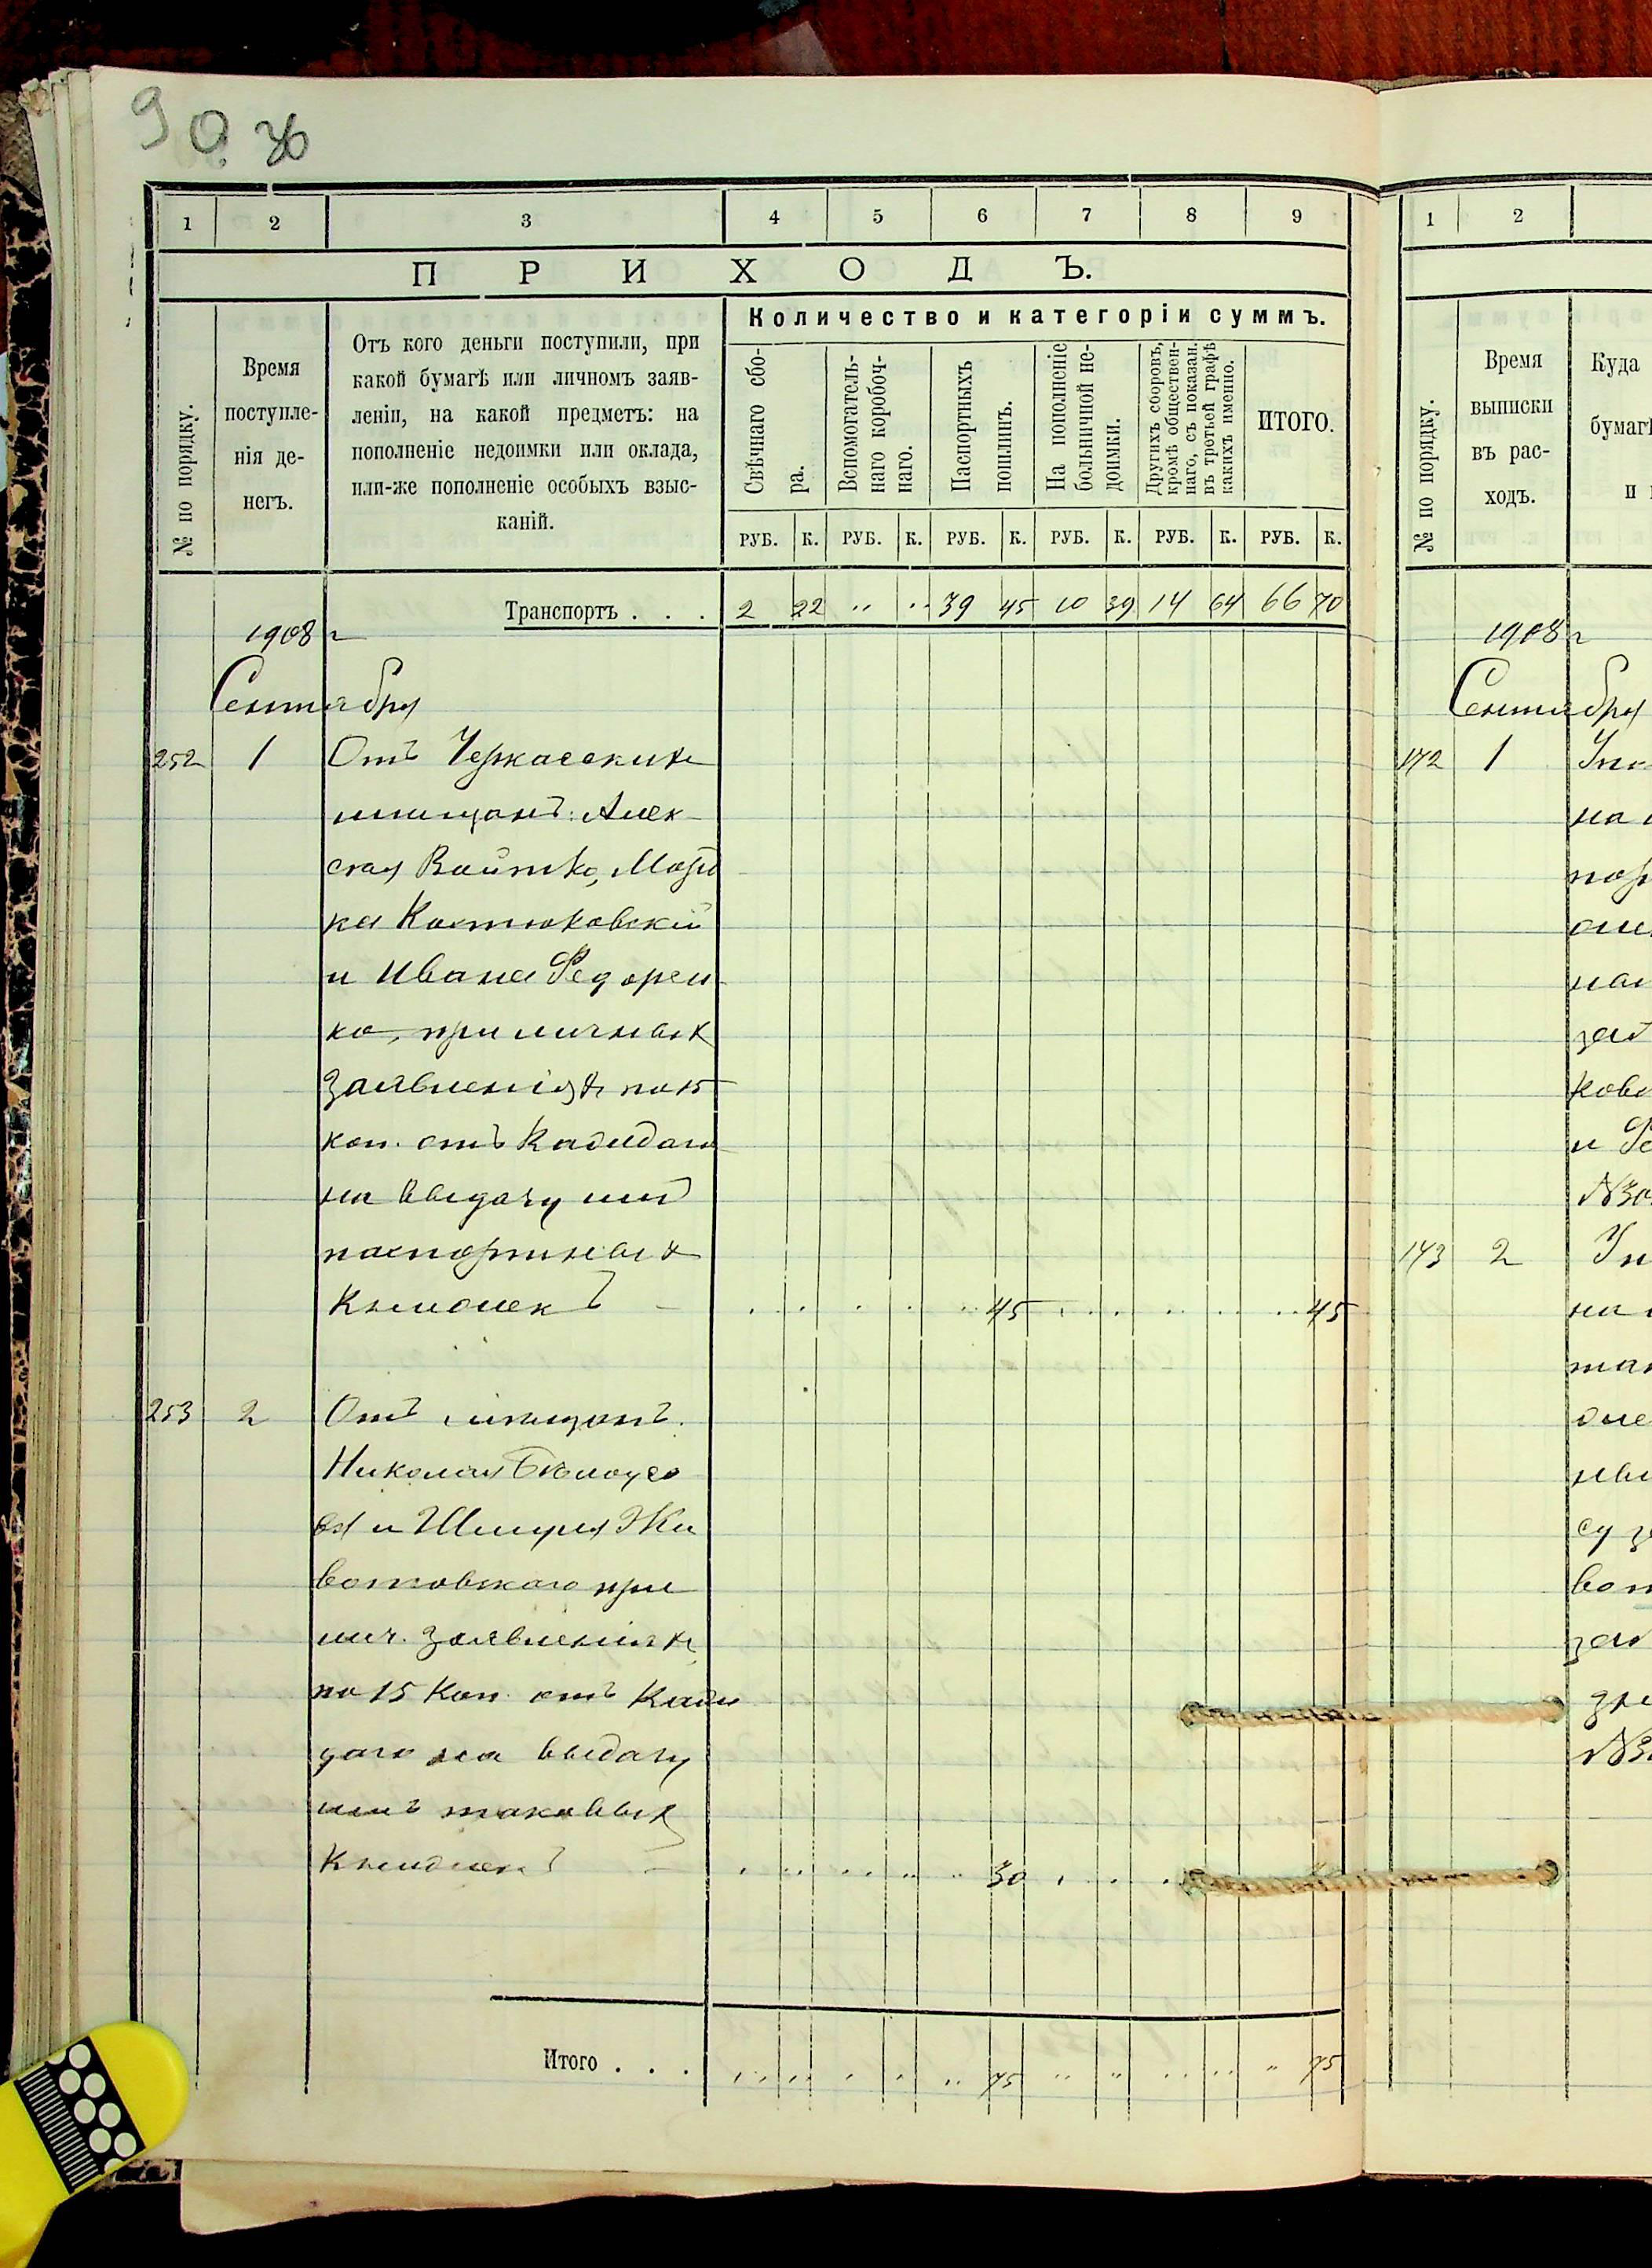 90 зв
1 2 3 4 5 6 7 8 9
ПРИХОДЪ.
№ по порядку.
Время
поступле-
нія де-
негъ.
Отъ кого деньги поступили, при
какой бумагѣ или личномъ заяв-
леніи, на какой предметъ: на
пополненіе недоимки или оклада,
или-же пополненіе особыхъ взыс-
каній.
Количество и категоріи суммъ.
Свѣчнаго сбо-
ра.
Вспомогатель-
наго коробоч-
наго.
Паспортныхъ
пошлинъ.
На пополненіе
больничной не-
доимки.
Другихъ сборовъ,
кромѣ обществен-
наго, съ показан.
въ третьей графѣ
какихъ именно.
ИТОГО.
РУБ. К. РУБ. К. РУБ. К. РУБ. К. РУБ. К. РУБ. К.
Транспортъ . . . 2 22 " " 39 45 10 39 14 64 66 70
1908 г
Сентября
252 1 Отъ Черкасскихъ
мѣщанъ: Алек
сея Войтко,
ка Костюковскій
и Ивана Федорен
ко, при личныхъ
заявленіяхъ по 15
коп. отъ каждаго
на выдачу имъ
паспортныхъ
книжекъ 45 45
253 2 Отъ мѣщанъ
Николая Бѣлоусо
ва и Шмуля Жи
вотовскаго при
лич. заявленіяхъ
по 15 коп. отъ каж
даго на выдачу
имъ таковыхъ
книжекъ 30
Итого . . . 75 75
1 2
№ по порядку.
Время
выписки
въ рас-
ходъ.
Куда
бумаг
и
1908 г
Сентября
172 1
на
пор
нов
и Фе
173 2
на